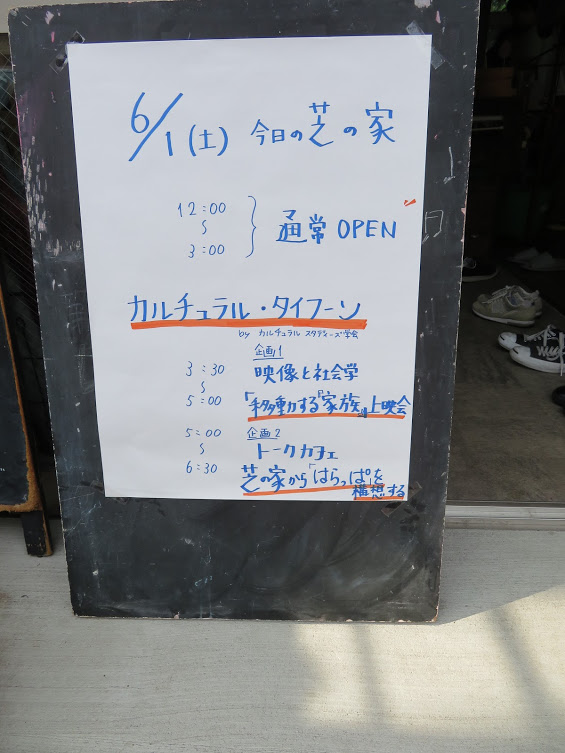 6/1(土) 今日の芝の家
12:00
〜
3:00
通常 OPEN
カルチュラル・タイフーン
by カルチュラル スタディーズ学会
企画1
3:30
〜
5:00
映像と社会学
「移動する『家族』」上映会
5:00
〜
6:30
企画2
トークカフェ
芝の家から「はらっぱ」を
構想する